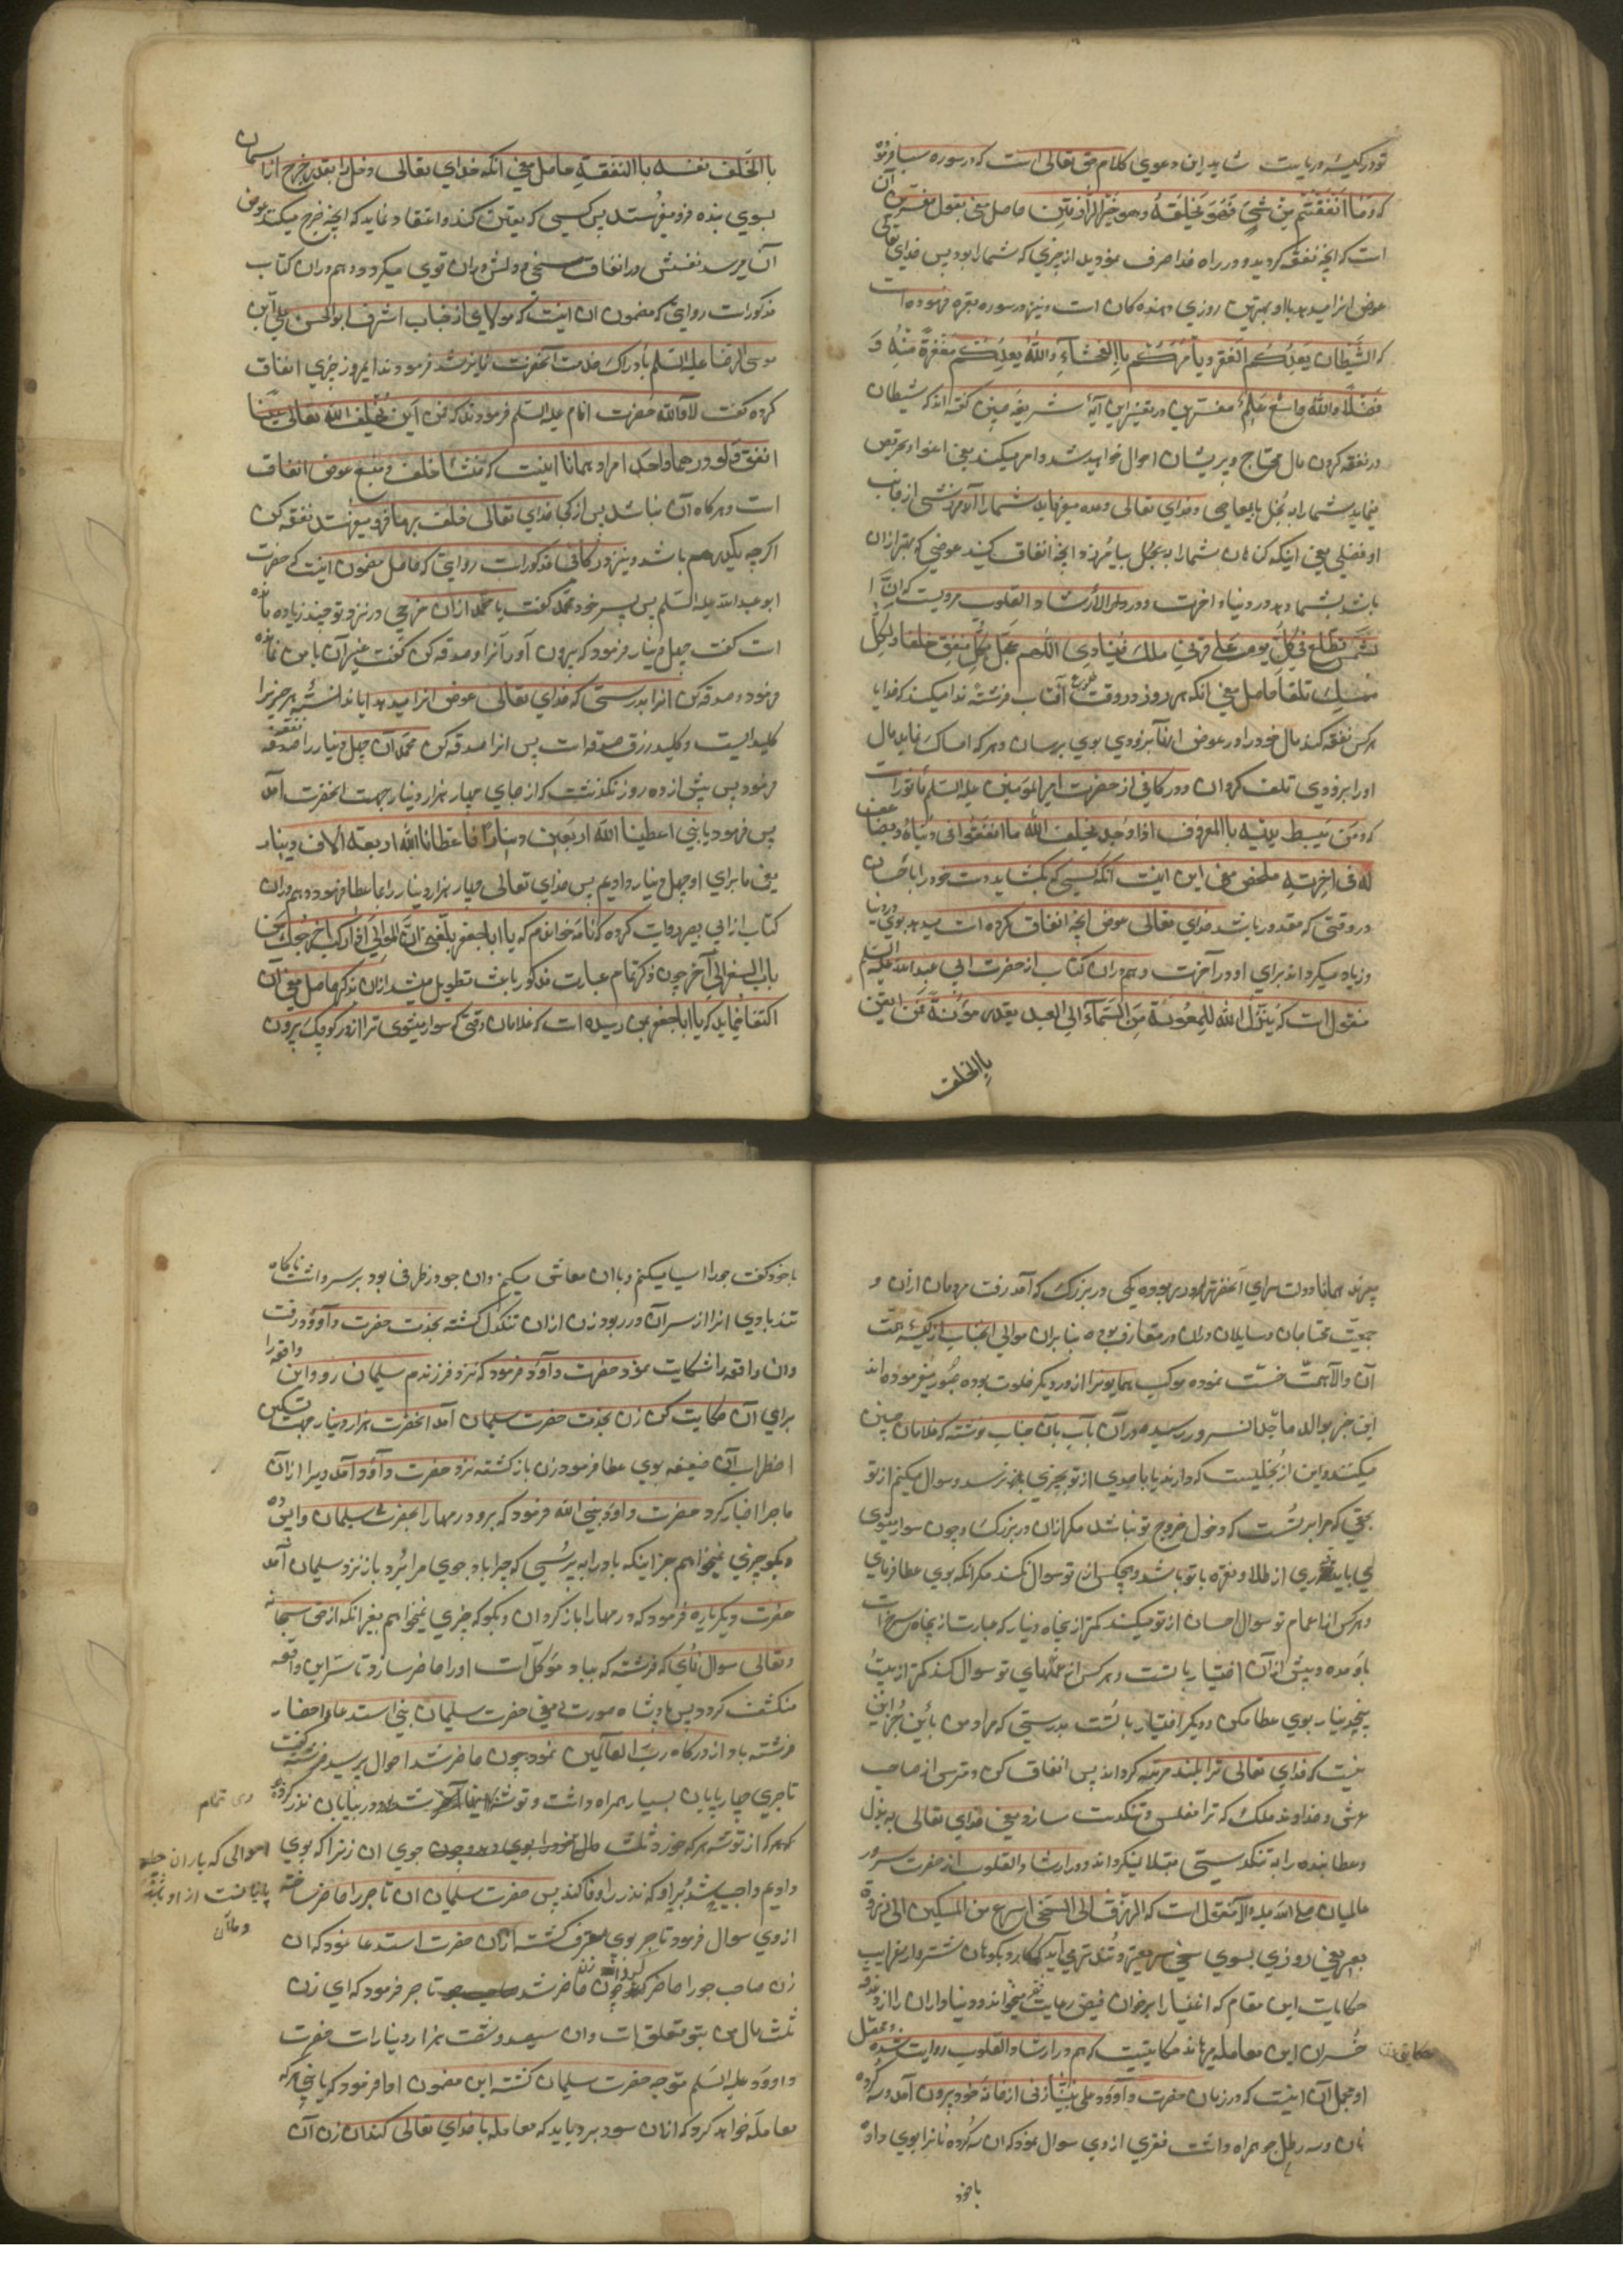 تو در کیسه و ریاست شاید این دعوی کلام حق تعالی است که در سوره سبا فرموده
که و ما انفقتم من شیئ فهو یخلفه و هو خیر الرازقین حاصل معنی بقول مفسرین آن
است که آنچه نفقه کردید و در راه خدا صرف نمودید از چیزی که شما را بود پس خدای تعالی
عوض آنرا میدهد با او بهترین روزی دهنده کان است و نیز در سوره بقره فرموده است
که الشیطان یعدکم الفقر و یأمرکم باالفحشآء والله یعدکم مغفرة منه و
فضلا والله واسع علیم مفسرین در تفسیر این آیه شریفه چنین گفته اند که شیطان
در نفقه کردن مال محتاج و پریشان احوال خواهید شد و امر میکند یعنی اغوا و تحریص
مینماید شما را به بخل یا بمعاصی و خدای تعالی وعده میفرماید شما را آمرزشی از جانب
او فضلی یعنی اینکه کناهان شما را به بیامرزد و آنچه انفاق کنید عوضی که بهتر از آن
باشد بشما دهد در دنیا و اخرت و در الارشاد القلوب مرویست که ان ا
لشمس تطلع فی کل یوم علی قرنی ملک فینادی اللهم عجل لکل منفق خلفا و لکل
ممسک تلفا حاصل معنی آنکه هر روز در وقت طلوع آفتاب فرشته ندا میکند که خدایا
هر کس نفقه کند مال خود را در عوض آنرا بزودی بوی برسان و هر که امساک نماید مال
او را بزودی تلف کردان و در کافی از حضرت امیرالمومنین علیه السلم مأثور است
که و من یبسط یدیه باالمعروف اذا وجد یخلف الله ما انفق فی دنیاه و یضاعف
له فی اخرته ملخص معنی این اینست آنکه کسی که بکشاید دست خود را باحسان
در وقتی که مقدور باشد خدای تعالی عوض آنچه انفاق کرده است میدهد بوی در دنیا
و زیاد میکرداند برای او در آخرت و هم در آن کتاب از حضرت ابی عبدالله علیه السلم
منقول است که ینزل الله المعونة من السمآء الی العبد بقدر مؤنة فمن ایقن
باالخلف
باالخلف نفسه باالنفقة حاصل معنی آنکه خدای تعالی و فضل را بقدر خرج از آسمان
بسوی بنده فرو میفرستد پس کسی که یقین کند و اعتقاد نماید که آنچه خرج میکند عوض
آن میرسد نفسش در انفاق سخی و دلش در آن قوی میکردد و هم در آن کتاب
مذکور است روایتی که مضمون آن اینست که مولای از جناب اشرف ابوالحسن علی ابن
موسی الرضا علیه السلم بادراک خدمت آنحضرت فایز شد فرمودند امروز چیزی انفاق
کرده گفت لا والله حضرت امام علیه السلم فرمودند که فمن این یخلف الله تعالی علینا
انفق و لو درهما واحدا مراد همانا اینست که منشأ خلف و منبع عوض انفاق
است و هر کاه آن نباشد پس از کجا خدای تعالی خلف بر ما فرو میفرستد نفقه کن
اکر چه یکدرهم باشد و نیز در کافی مذکور است روایتی که حاصل مضمون اینست که حضرت
ابو عبدالله علیه السلم پس پسر خود محمد گفت یا محمد از آن خرجی در نزد تو چند زیاده مانده
است گفت چهل دینار فرمود که بیرون آور آنرا و صدقه کن گفت غیر آن با من نمانده
فرمود و صدقه کن آنرا بدرستی که خدای تعالی عوض آنرا میدهد ایا ندانسته هر چیز را
کلیدیست و کلید رزق صدقه است پس آنرا صدقه کن محمد آن چهل دینار را صدقه
فرمود پس پیش از ده روز نکذشت که از جای چهار هزار دینار جهت آنحضرت آمد
پس فرمود یا بنی اعطینا الله اربعین دینارا فاعطانا الله اربعة الاف دینار
یعنی ما برای او چهل دینار دادیم پس خدای تعالی چهار هزار دینار را بما عطا فرمود و هم در آن
کتاب از ابی بصیر روایت کرده که نامه خواندم که یا ابا جعفر بلغنی ان الموالی اذا رکبت اخرجوک من
باب الصغیر الی آخر چون ذکر تمام عبارت مذکور باعث تطویل میشد از آن بذکر حاصل معنی آن
اکتفا مینماید که یا ابا جعفر بمن رسیده است که غلامان وقتی که سوار میشوی ترا از در کوچک بیرون
میبرند همانا دولت سرای آنحضرت را دو در بوده یکی در بزرک که آمد رفت مردمان از آن و
جمعیت محتاجان و سایلان در آن در متعارف بوده بنابران موالی آنجناب از کیسه همت
آن والا همت خست نموده موکب همایونرا از در دیکر خلوت بوده عبور میفرموده اند
این خبر بوالد ماجد آن سرور رسیده در آن باب بآن جناب نوشته که غلامان چنین
میکنند و این از بخلیست که دارند یا احدی از تو بچیزی نرسد و سوال میکنم از تو
بحقی که مرا بر تست که دخول خروج تو نباشد مکر از آن در بزرک و چون سوار میشوی
می باید زری از طلا و نقره با تو باشد و هیچکس از تو سوال نکند مکر آنکه بوی عطا فرمای
و هر کس از اعمام تو سوال احسان از تو میکند کمتر از پنجاه دینار که عبارت از پنجاه سرخ است
باو مده و بیش از آن اختیار با تست و هر کس از عمهای تو سوال کند کمتر از بیست
پنج دینار بوی عطا مکن و دیکر اختیار با تست بدرستی که مراد من باین جز این
نیست که خدای تعالی ترا بلند مرتبه کرداند پس انفاق کن و مترس از صاحب
عرش و خداوند ملک که ترا مفلس و تنکدست سازد یعنی خدای تعالی به بذل
و عطا بنده را به تنکدستی مبتلا نیکرداند و در ارشاد القلوب از حضرت سرور
عالمیان صلی الله علیه و آله منقول است که الرزق الی السخی اسرع من السکین الی ذروة
بعیر یعنی روزی بسوی سخی سریعتر و تندتر می آید که کارد بکوهان شتر و از غرایب
حکایات این مقام که اغنیا را بر خوان فیض رعایت فقرا میخواند و دنیاداران را از
خسران این معامله میرهاند حکایتیست که هم در ارشاد القلوب روایت شده و مجمل
او مجمل آن اینست که در زمان حضرت داوود علی نبینا زنی از خانه خود بیرون آمد و سه کرده
نان و سه رطل جو همراه داشت فقری از وی سوال نمود که آن سه کرده نانرا بوی داد
باخود
حکایت
باخود گفت جو را آسیا میکنم و با آن معاش میکنم و آن جو در ظرفی بود بر سر داشت ناکاه
تند بادی آنرا از سر آن در ربود زن از آن تنکدل کشته بخدمت حضرت داوود رفت
و آن واقعه را شکایت نمود حضرت داوود فرمود که نزد فرزندم سلیمان رو و این واقعه را
برای آن حکایت کن زن بخدمت حضرت سلیمان آمد آنحضرت هزار دینار جهت تسکین
اضطراب آن ضعیفه بوی عطا فرمود زن بازکشته نزد حضرت داوود آمد و یرا از آن
ماجرا اخبار کرد حضرت داود نبی الله فرمود که برو درمها را بحضرت سلیمان واپس ده
و بکو چیزی نمیخواهم جز اینکه باد را به پرسی که چرا باد جوی مرا برد باز نزد سلیمان آمد
حضرت دیکر باره فرمود که درمها را باز کردان و بکو که چیزی نمیخواهم بغیر آنکه از حق سبحانه
و تعالی سوال نمای که فرشته که بباد موکل است او را حاضر سازد تا سر این واقعه
منکشف کردد پس پادشاه صورت و معنی حضرت سلیمان نبی استدعا و احضار
فرشته باد از درکاه رب العالمین نمود چون حاضر شد احوال پرسید فرشته گفت
تاجری چارپایان بسیار همراه داشت و توشه شد و در بیابان نذر کرده
که هر که از توشه هر که خورد ثلث مال خود را بوی دهد چون جوی آن زنرا که بوی
دادیم واجب شد بر او که نذر را وفا کند پس حضرت سلیمان آن تاجر را حاضر ساخته
از وی سوال فرمود تاجر بوی معترف کشته از آن حضرت استدعا نمود که آن
زن صاحب جو را حاضر کرداند چون زن حاضر شد تاجر فرمود که ای زن
ثلث مال من بتو متعلق است و آن سیصد و شصت هزار دینار است حضرت
داوود علیه السلم متوجه حضرت سلیمان کشته این مضمون ادا فرمود که یا بنی هر که
معامله خواهد کرد که از آن سود برد باید که معامله با خدای تعالی کند آن زن آن
وی تمام
احوالی که باران